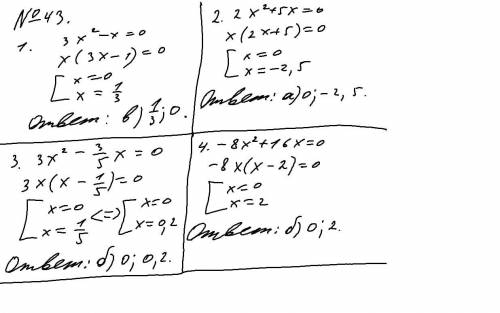 №43.
1. 3x²-x=0
x(3x-1)=0
[x=0
x=1/3
Ответ: в) 1/3; 0.
2. 2x²+5x=0
x(2x+5)=0
[x=0
x=-2,5
Ответ: а) 0; -2,5.
3. 3x² - 3/5 x = 0
3x(x - 1/5)=0
[x=0 <=> [x=0
x=1/5 x=0,2
Ответ: б) 0; 0,2.
4. -8x²+16x=0
-8x(x-2)=0
[x=0
x=2
Ответ: б) 0; 2.